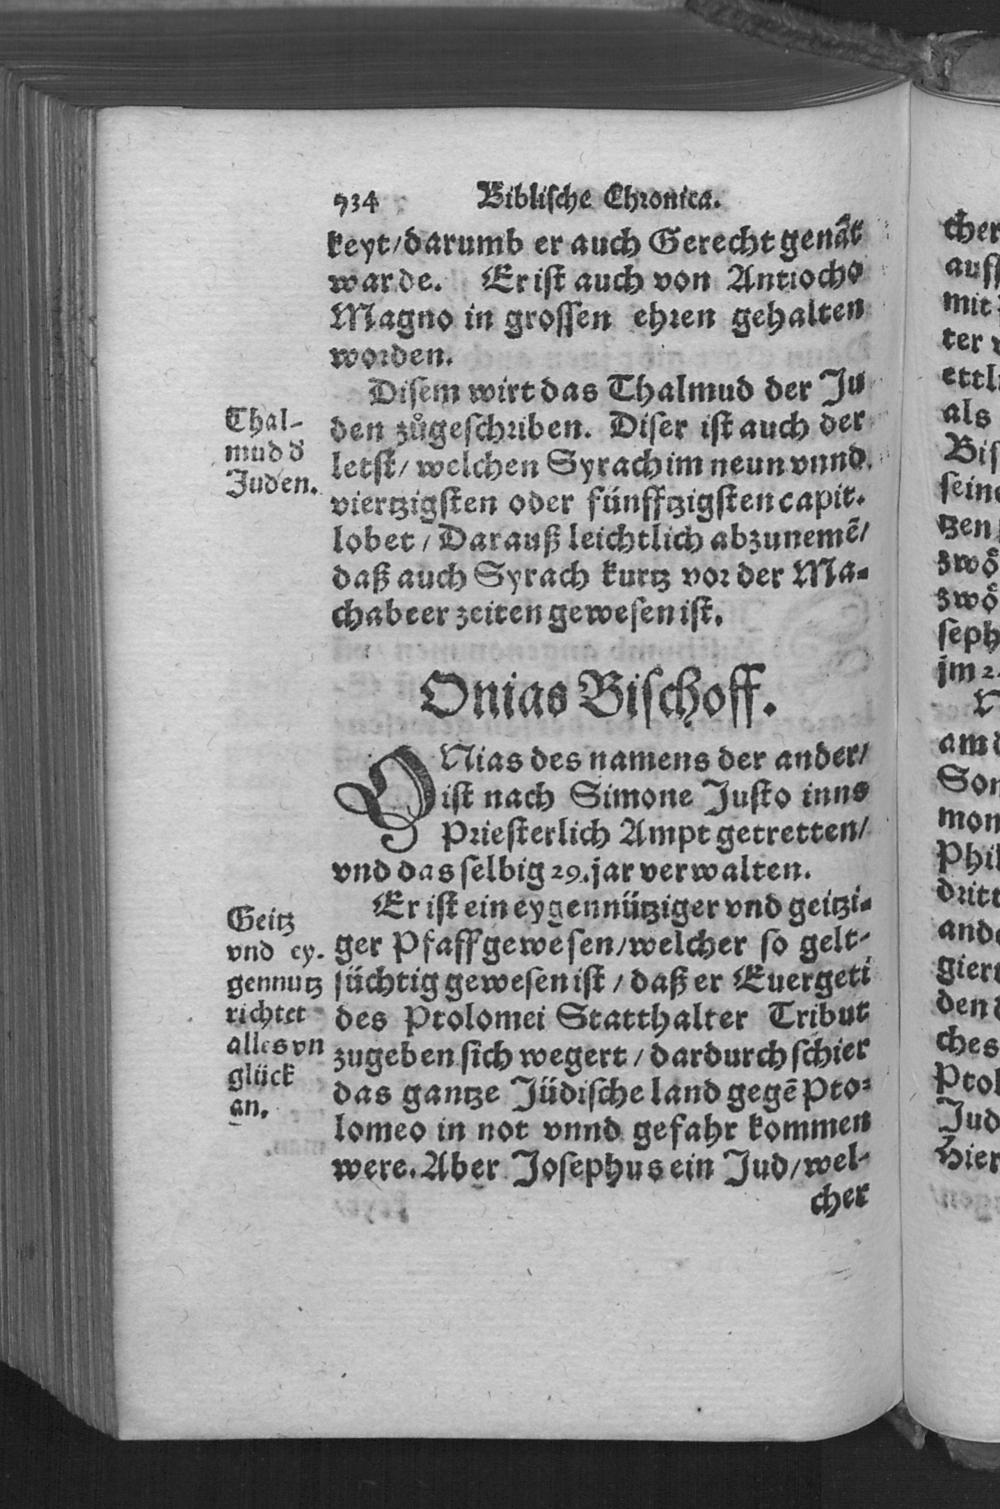 934 Biblische Chronica.
keyt/darumb er auch Gerecht genãt
warde. Er ist auch von Antiocho
Magno in grossen ehren gehalten
worden.
Disem wirt das Thalmud der Ju
den zůgeschriben. Diser ist auch der
letst/ welchen Syrach im neun vnnd
viertzigsten oder fünfftzigsten capit.
lobet/ Darauß leichtlich abzunemẽ/
daß auch Syrach kurtz vor der Ma-
chabeer zeiten gewesen ist.
Thal-
mud d̓
Juden.
Onias Bischoff.
ONias des namens der ander/
ist nach Simone Justo inns
Priesterlich Ampt getretten/
vnd das selbig 29. jar verwalten.
Er ist ein eygennütziger vnd geitzi-
ger Pfaff gewesen/welcher so gelt-
süchtig gewesen ist/ daß er Euergeti
des Ptolomei Statthalter Tribut
zugeben sich wegert/ dardurch schier
das gantze Jüdische land gegẽ Pto-
lomeo in not vnnd gefahr kommen
were. Aber Josephus ein Jud/wel-
cher
Geitz
vnd ey-
gennutz
richtet
alles vn
glück
an.
cher
auff
mit
ter
ettl
als
Bis
seine
tzen
zwö
zwö
seph
jm 2
am
Son
mon
Phil
dritt
ande
giert
den
ches
Ptol
Jud
Hier